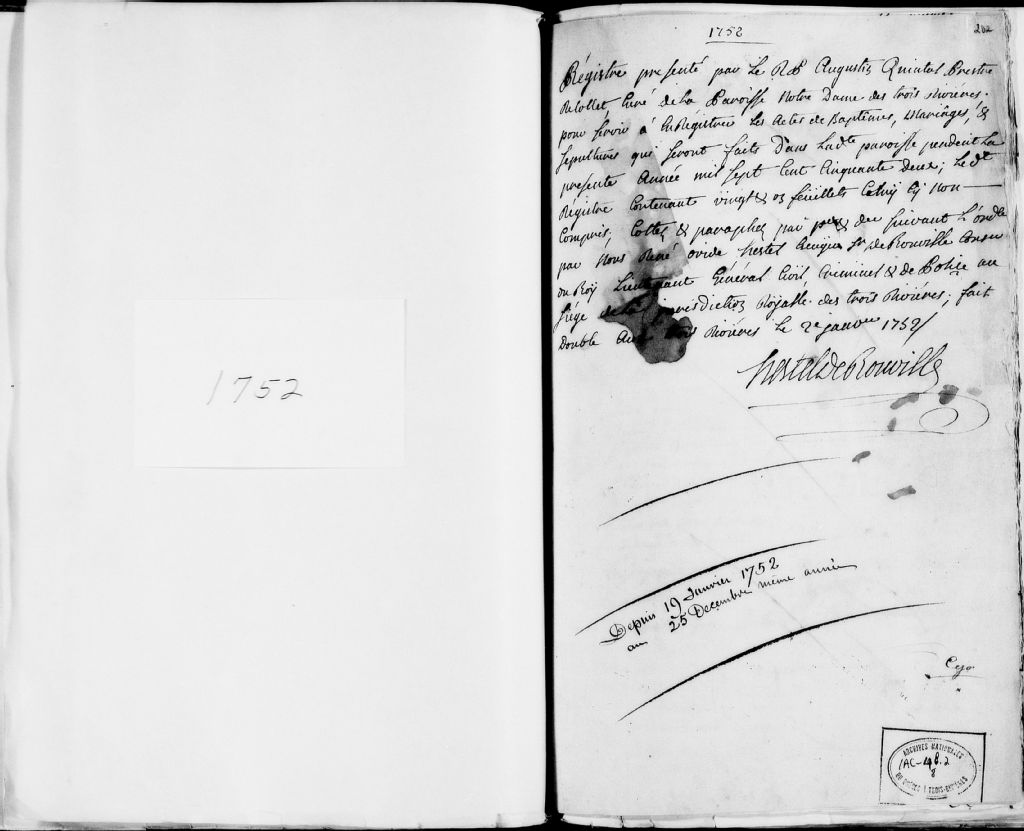 1752
1752
202
Régistre presenté par Le R.P. Augustin Quintal Prestre
Recollet, Curé de La Paroisse Notre Dame des trois Rivieres.
pour servir á EnRégistrer Les Actes de Baptêmes, Mariâges, &
sepultures qui seront faits Dans Ladte paroisse pendent La
presente Année mil sept Cent Cinquante deux; Le dt
Régistre Contenant vingt & feüillets Celuy Cy Non
Compris, Cottes & paraphes par per & der suivant L'ordce
par Nous René ovide hertel Ecuyer Sr de Rouville Conser
du Roy Lieutenant Général Civil, Criminel & de Police au
siége de La jurisdiction Royalle des trois Rivieres; fait
Double Aux trois Rivieres Le 2e janvier 1752/
hertel De Rouville
Depuis 19 Janvier 1752
au 25 Decembre même année
ARCHIVES NATIONALES
1AC-48.2
8
DU QUÉBEC À TROIS-RIVIÈRES